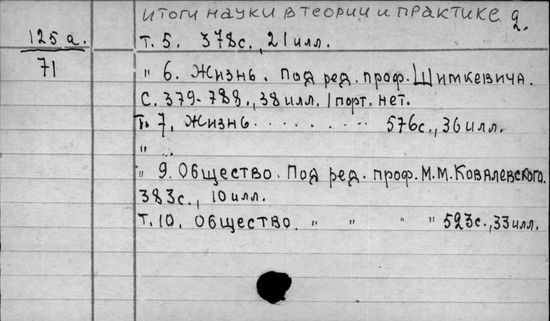 Итоги науки в теории и практике 2.
125а.
71
Т. 5. 378с., 21 илл.
" 6. Жизнь. Под ред. проф. Шимкевича.
С. 379-788., 38 илл. 1 порт. нет.
Т. 7. Жизнь . . . . . . . . . 576с., 36 илл.
"
" 9. Общество. Под ред. проф. М.М. Ковалевского.
383с., 10 илл.
Т. 10. Общество. " " " " 523с., 33 илл.